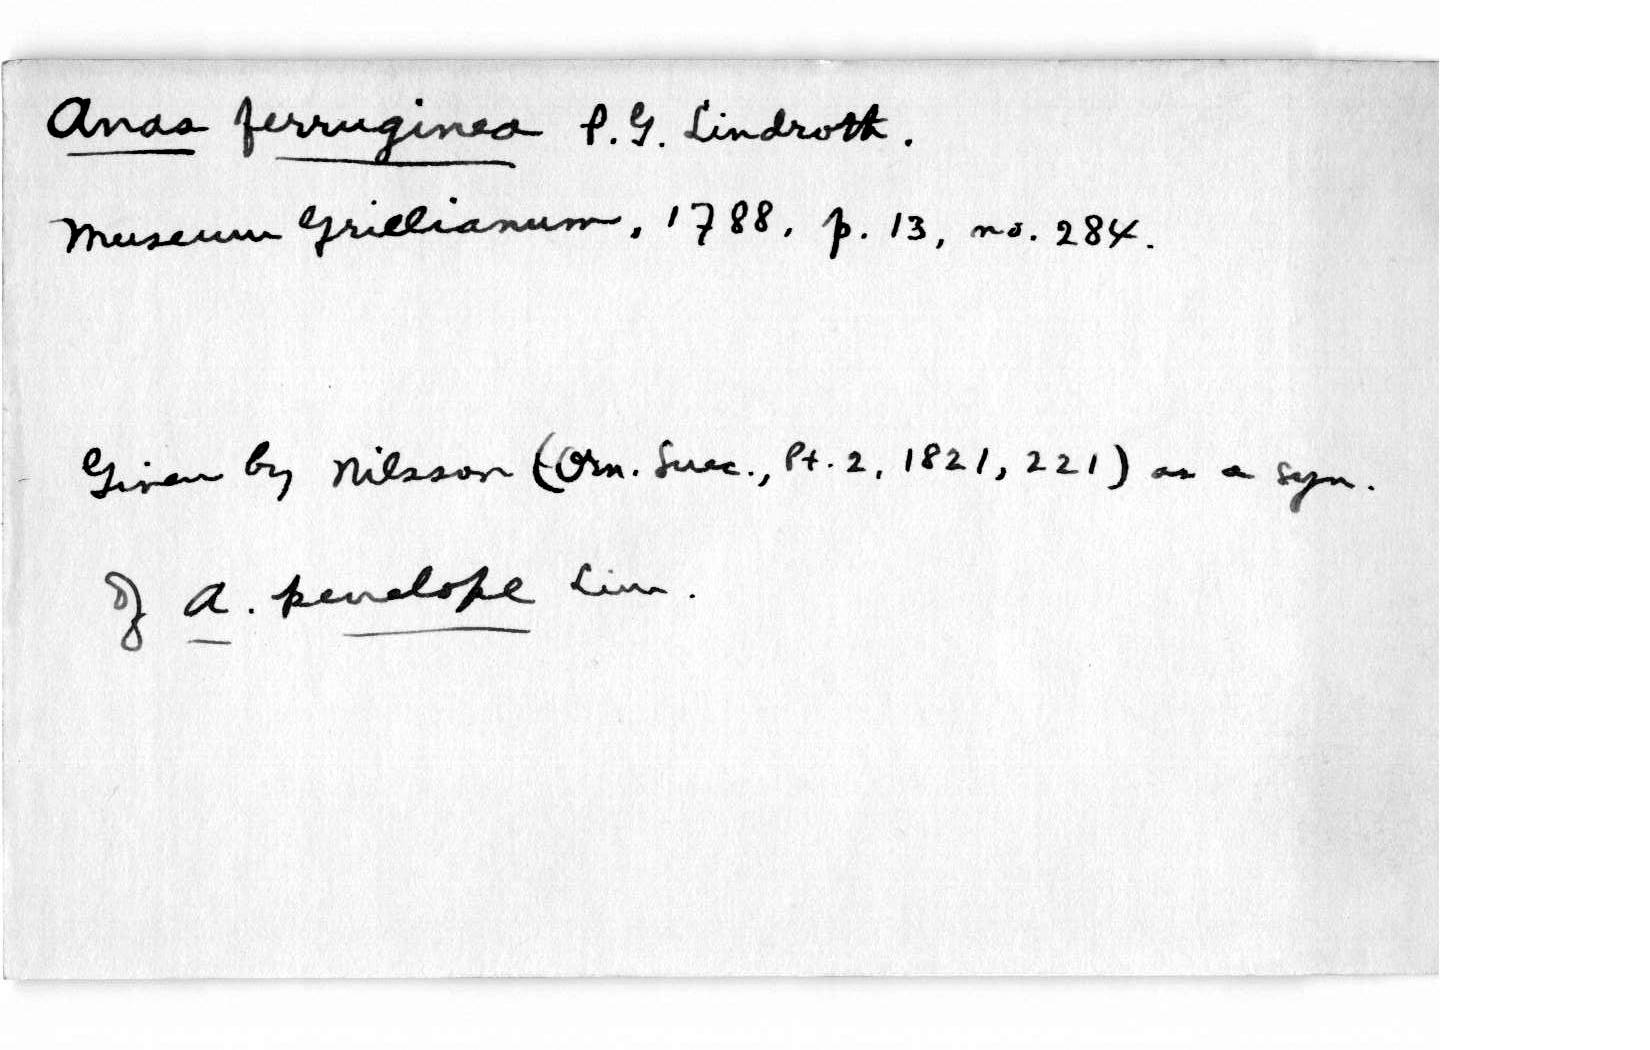 Anas ferruginea P.G. Lindroth.
Museum Grillianum, 1788, p. 13, no. 284.
Given by Nilsson (Orn. Suec., Pt. 2, 1821, 221) as a syn.
of A. penelope Linn.